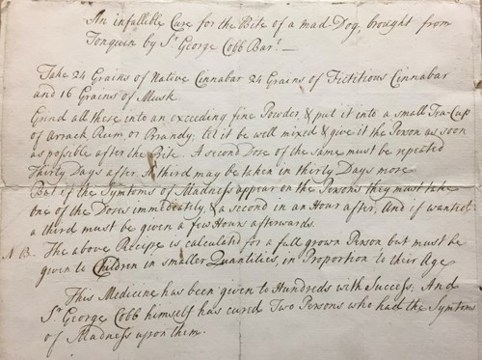 An infallible Cure for the Bite of a mad Dog, brought from
Tonquin by Sr. George Cobb Bart.
Take 24 Grains of Native Cinnabar 24 Grains of Fictitious Cinnabar
and 16 Grains of Musk
Grind all these into an exceeding fine Powder, & put it into a small Tea-Cup
of Arrack Rum or Brandy; let it be well mixed & give it the Person as soon
as possible after the Bite. A second Dose of the same must be repeated
Thirty Days after, A third may be taken in thirty Days more
But if the Symtoms of Madness appear on the Persons they must take
one of the Doses immediately, & a second in an Hour after, And if wanted
a third must be given a few Hours afterwards.
N B. The above Recipe is calculated for a full grown Person but must be
given to Children in smaller Quantities, in Proportion to their Age
This Medicine has been given to Hundreds with Success. And
Sr. George Cobb himself has cured Two Persons who had the Symtoms
of Madness upon them.